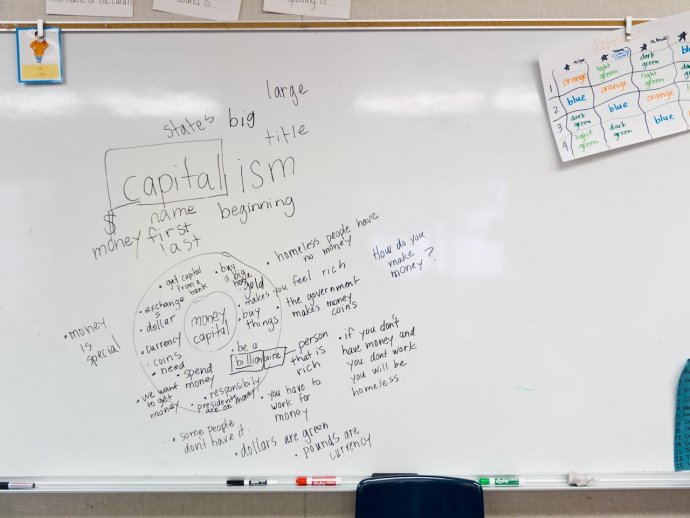 large
state's big
title
capitalism
$ name beginning
money first
last
• homeless people have
no money
How do you
make
money?
• get capital
from a
bank
• buy
a big
• gold
• makes you feel rich
• exchange
$
• dollar
• buy
things
• the government
makes money
coins
money
capital
• money
is
special
• currency
• coins
• need
• be a
billionaire
person
that is
rich
• if you don't
have money and
you dont work
you will be
homeless.
• spend
money
• we want
to get
money
• responsibily
• presidents
are on money
• you have to
work for
money
• some people
don't have it
• dollars are green
• pounds are
currency
1 orange light green dark green
2 blue orange light green
3 dark green blue orange
4 light green dark green blue